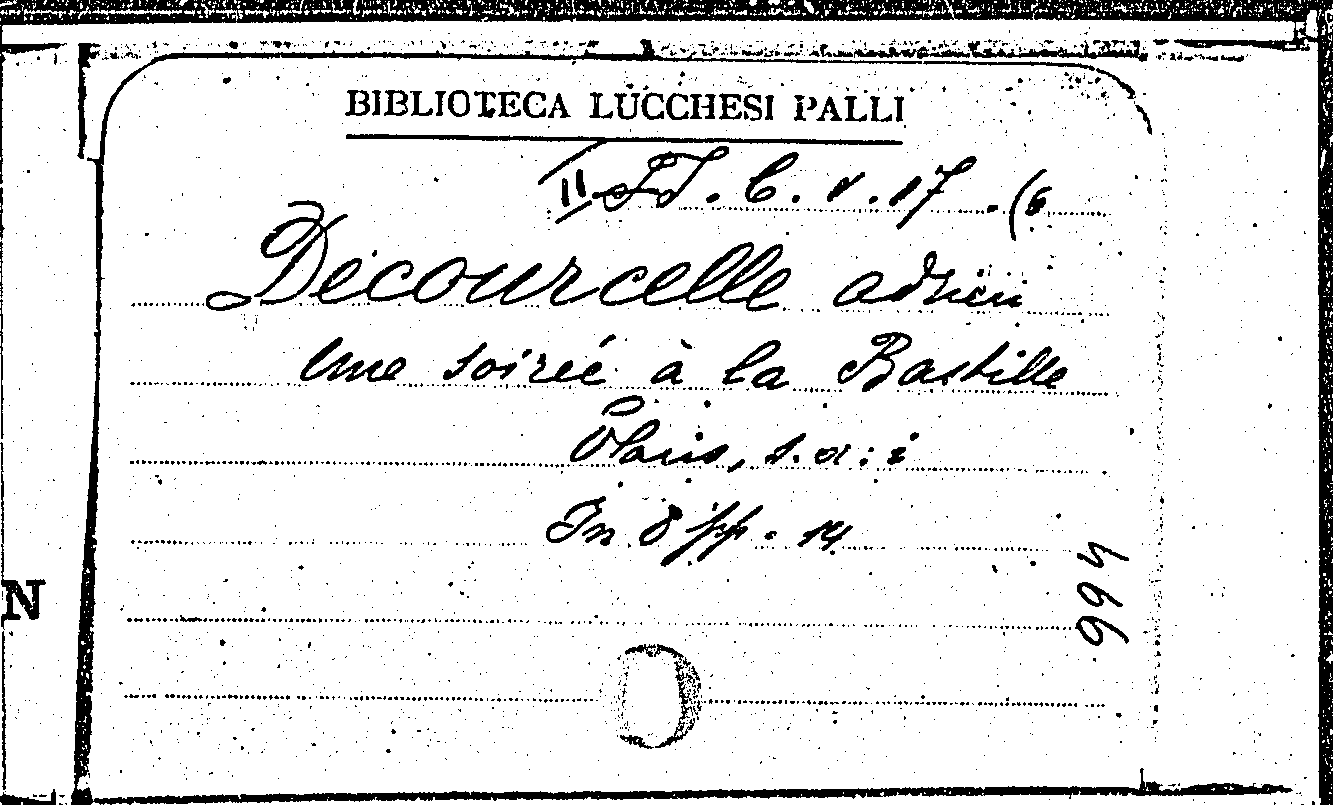 BIBLIOTECA LUCCHESI PALLI
II . C. V. 17 . (6
Decourcelle Adrien
Une soirée à la Bastille
Paris, s. a. :
In 8 pp. 14
994
N